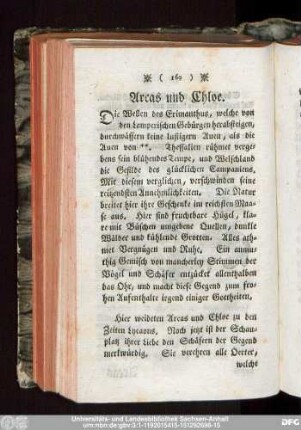 ( 162 )
Arcas und Chloe.
Die Wellen des Erimanthus, welche von
den Lamperischen Gebürgen herabsteigen,
durchwässern keine lustigern Auen, als die
Auen von **. Thessalien rühmet verge-
bens sein blühendes Tempe, und Welschland
die Gefilde des glücklichen Campaniens.
Mit diesem verglichen, verschwinden seine
reizendsten Annehmlichkeiten. Die Natur
breitet hier ihre Geschenke im reichsten Maa-
se aus. Hier sind fruchtbare Hügel, kla-
re mit Büschen umgebene Quellen, dunkle
Wälder und kühlende Grotten. Alles ath-
met Vergnügen und Ruhe. Ein anmu-
thig Gemisch von mancherley Stimmen der
Vögel und Schäfer entzücket allenthalben
das Ohr, und macht diese Gegend zum fro-
hen Aufenthalte irgend einiger Gottheiten.
Hier weideten Arcas und Chloe zu den
Zeiten Lycaons. Noch jezt ist der Schau-
platz ihrer Liebe den Schäfern der Gegend
merkwürdig. Sie verehren alle Oerter,
welche
Universitäts- und Landesbibliothek Sachsen-Anhalt
urn:nbn:de:gbv:3:1-1192015415-151292696-15
DFG